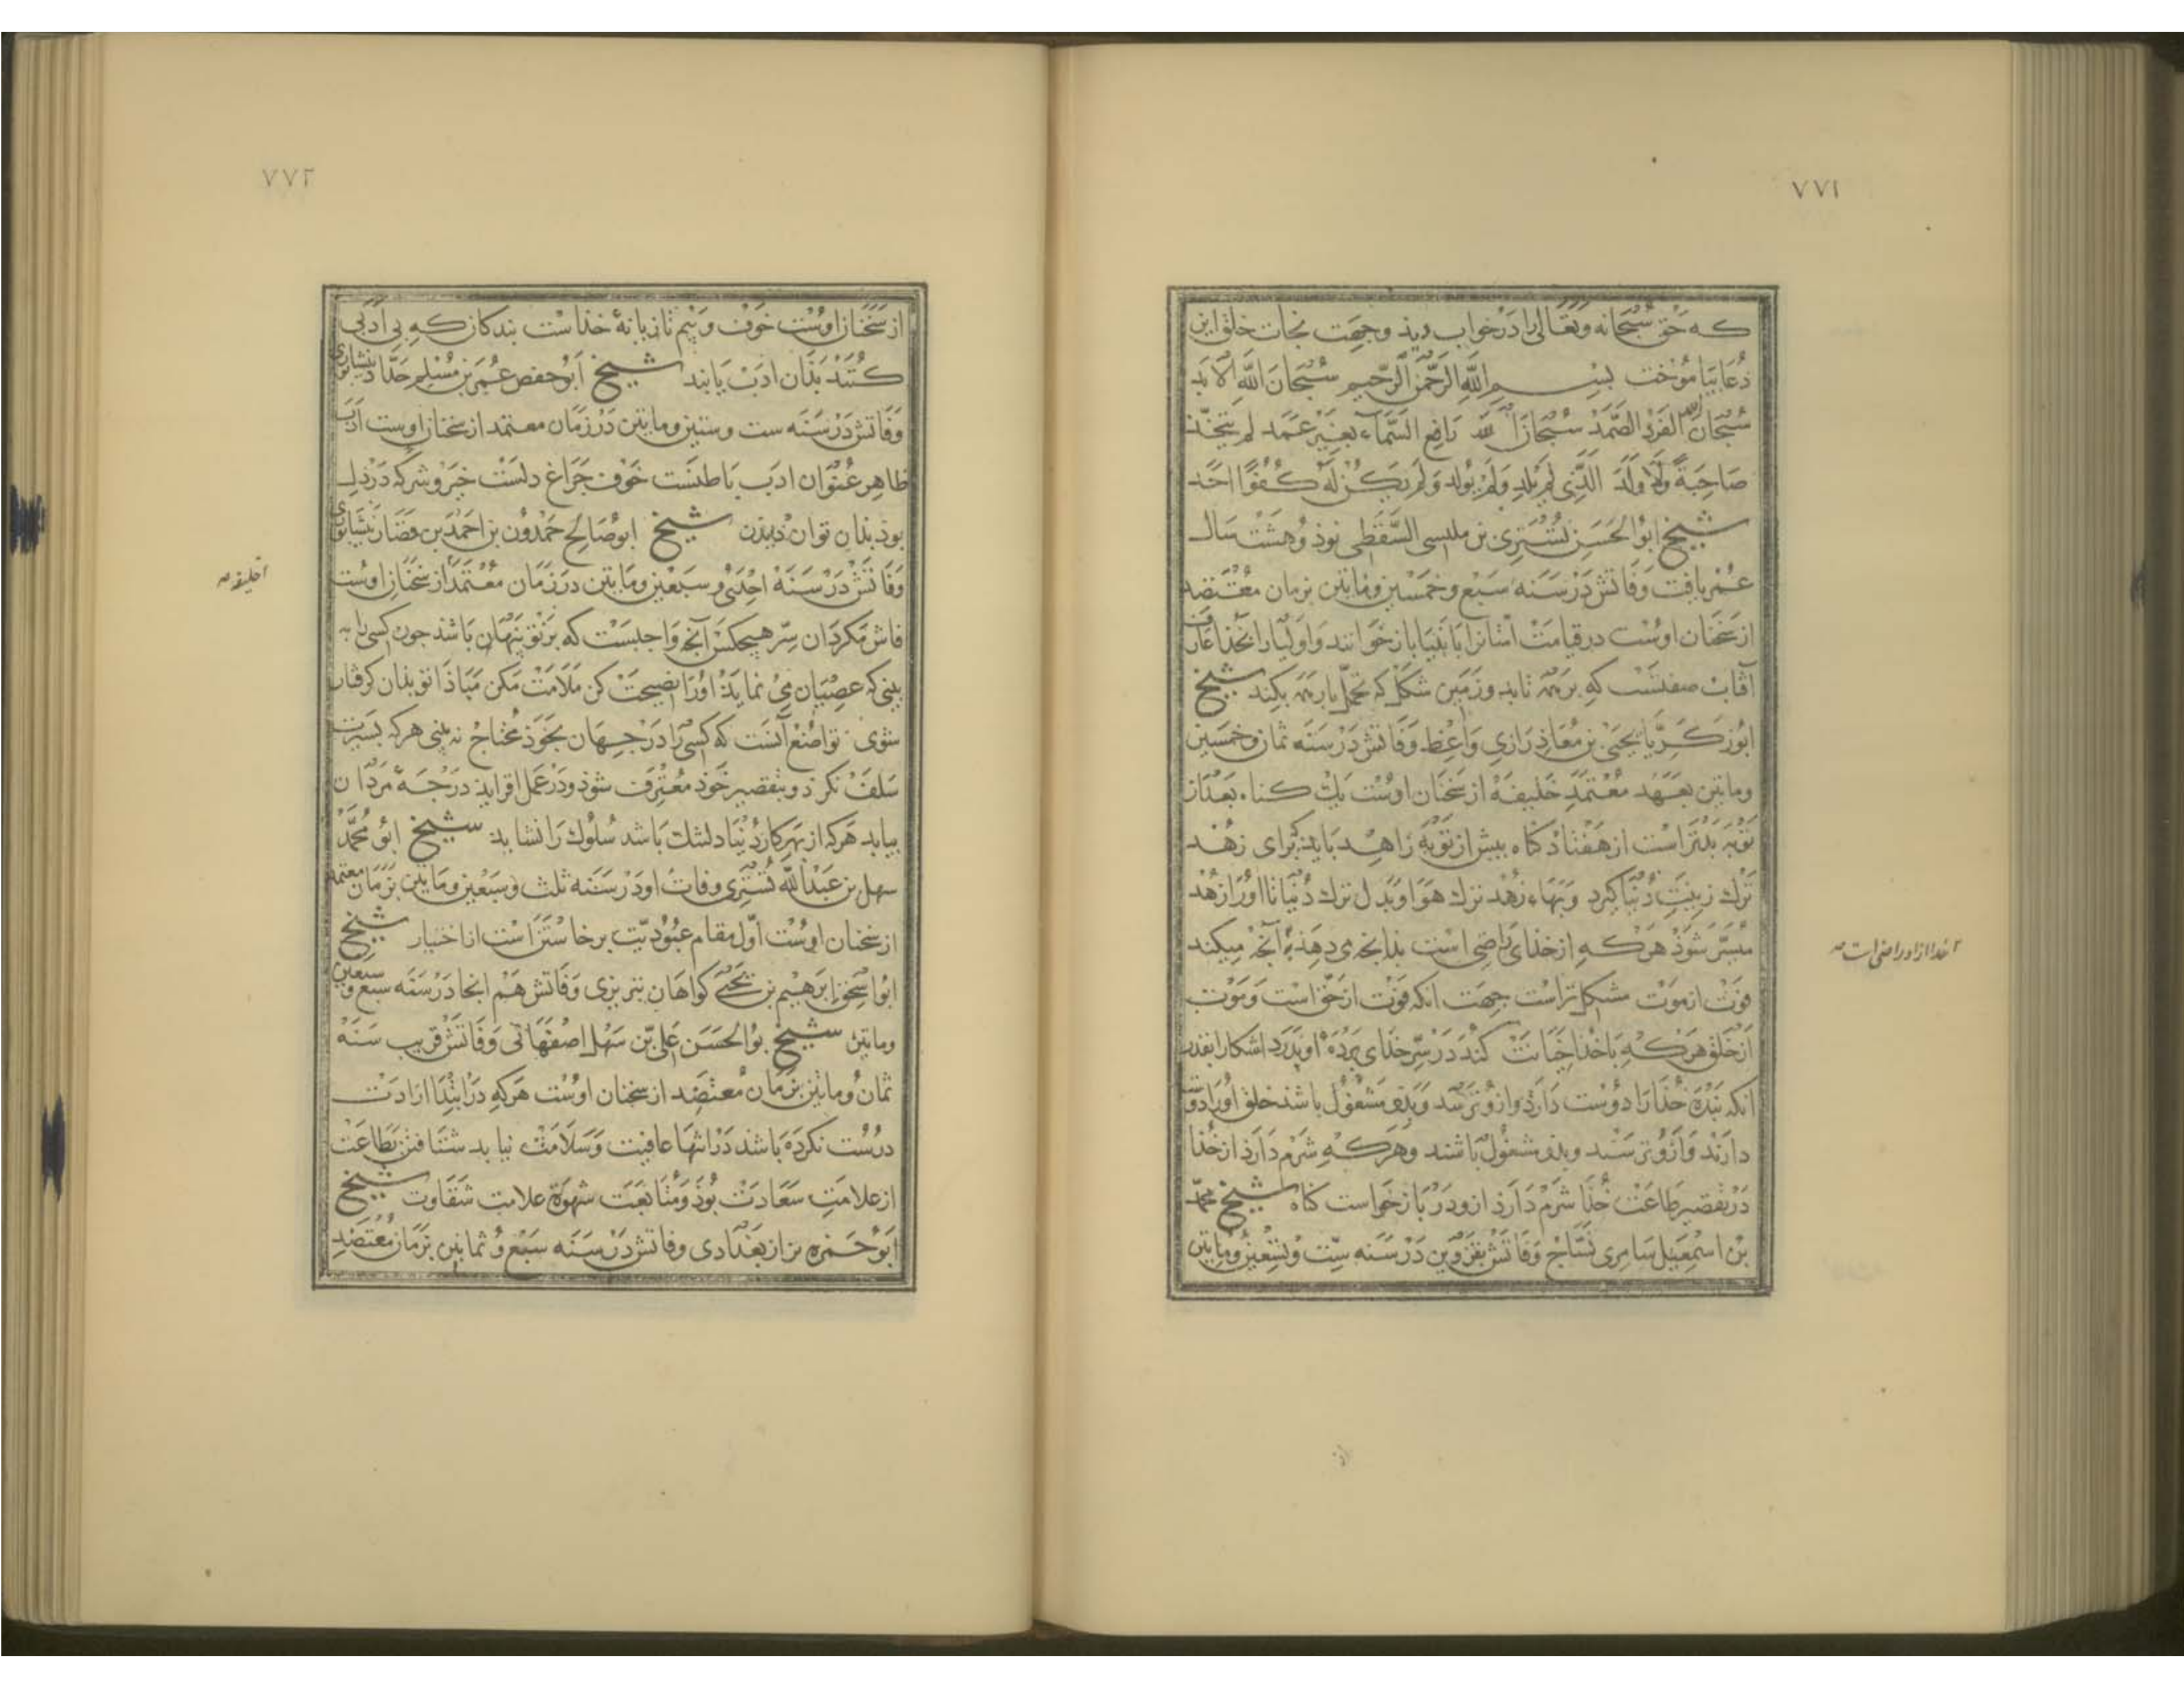 ۷۷۱
که حق سبحانه و تعالی را در خواب دید و جهت نجات خلق این
دعا بیاموخت بسم الله الرحمن الرحیم سبحان الله الابد
سبحان الله الفرد الصمد سبحان الله رافع السماء بغیر عمد لم یتخذ
صاحبة ولا ولدا الذی لم یلد ولم یولد ولم یکن له کفوا احد
شیخ ابو الحسن تستری بن ملیسی السقطی نود و هشت سال
عمر یافت وفاتش در سنه سبع و خمسین و مایتین بزمان معتضد
از سخنان اوست در قیامت امتانرا بانبیا باز خوانند و اولیا را بخدا عارف
آفتاب صفتست که بر همه تابد و زمین شکل که تحمل بار همه بکند شیخ
ابوزکریا یحیی بن معاذ رازی واعظ وفاتش در سنه ثمان و خمسین
و مایتین بعهد معتمد خلیفه از سخنان اوست یک کناه بعد از
توبه بدتر است از هفتاد کناه پیش از توبه زاهد باید که برای زهد
ترک زینت دنیا کیرد و بهاء زهد ترک هوا و بدل ترک دنیا تا اورا زهد
میسر شوذ هرکه از خدای راضی است بدانجه می دهذ به آنجه میکند
فوت از موت مشکلتر است جهت انکه فوت از حق است و موت
از خلق هرکه با خذا خیانت کند در سر خدای پرده او بدرد اشکارا بقدر
انکه بنده خذا را دوست دارذ و ازو ترسد و بذو مشغول باشد خلق اورا دوست
دارند و ازو ترسند و بذو مشغول باشند و هرکه شرم دارذ از خذا
در تقصیر طاعت خذا شرم دارد ازو در باز خواست کناه شیخ محمد
بن اسمعیل سامری نساج وفاتش بقزوین در سنه ست و تسعین و مایتین
۲ خدا از او راضی است صه
۷۷۲
از سخنان اوست خوف و بیم تازیانهٔ خذاست بندکان که بی ادبی
کنند بذان ادب یابند شیخ ابو حفص عمر بن مسلم حداد نیشابوری
وفاتش در سنه ست و ستین و مایتین در زمان معتمد از سخنان اوست ادب
ظاهر عنوان ادب باطنست خوف جراغ دلست خیر و شر که در دل
بوذ بذان توان دیذن شیخ ابو صالح حمدون بن احمد بن قصار نیشابوری
وفاتش در سنه احدی و سبعین و مایتین در زمان معتمد از سخنان اوست
فاش مکردان سر هیچکس آنچه واجبست که بر تو پنهان باشذ جون کسی را به
بینی که عصیان می نمایذ اورا نصیحت کن ملامت مکن مباذا تو بذان کرفتار
شوی تواضع آنست که کسی را در جهان بخوذ محتاج نه بینی هرکه بسیرت
سلف نکرذ و بتقصیر خوذ معترف شوذ و در عمل افزایذ درجه مردان
بیابد هرکه از بهر کار دنیا دلتنک باشد سلوک را نشاید شیخ ابو محمد
سهل بن عبد الله تستری وفات او در سنه ثلث و سبعین و مایتین بزمان معتمد
از سخنان اوست اول مقام عبودیت برخاستن است از اختیار شیخ
ابو اسحق ابرهیم بن یحیی کواهان تبریزی وفاتش هم انجا در سنه سبع و سبعین
و مایتین شیخ بو الحسن علی بن سهل اصفهانی وفاتش قریب سنه
ثمان و مایتین بزمان معتضد از سخنان اوست هرکه در ابتدا ارادت
درست نکرده باشد در انتها عافیت و سلامت نیابد شتافتن بطاعت
از علامت سعادت بوذ و متابعت شهوة علامت شقاوت شیخ
ابو حمزه بزاز بغدادی وفاتش در سنه سبع و ثمانین بزمان معتضد
۱ خلیفه صه